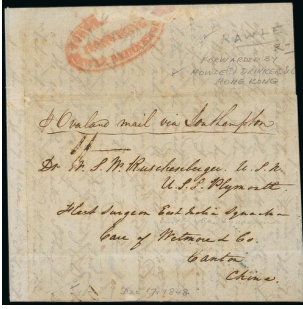 FORWARDED BY
HONG KONG
p Ovaland mail via Southampton
Dr. W. S. W. Ruschenberger. U. S. N.
U. S. S. Plymouth.
Fleet Surgeon East India Squadn
Care of Wetmore & Co.
Canton
China.
1848